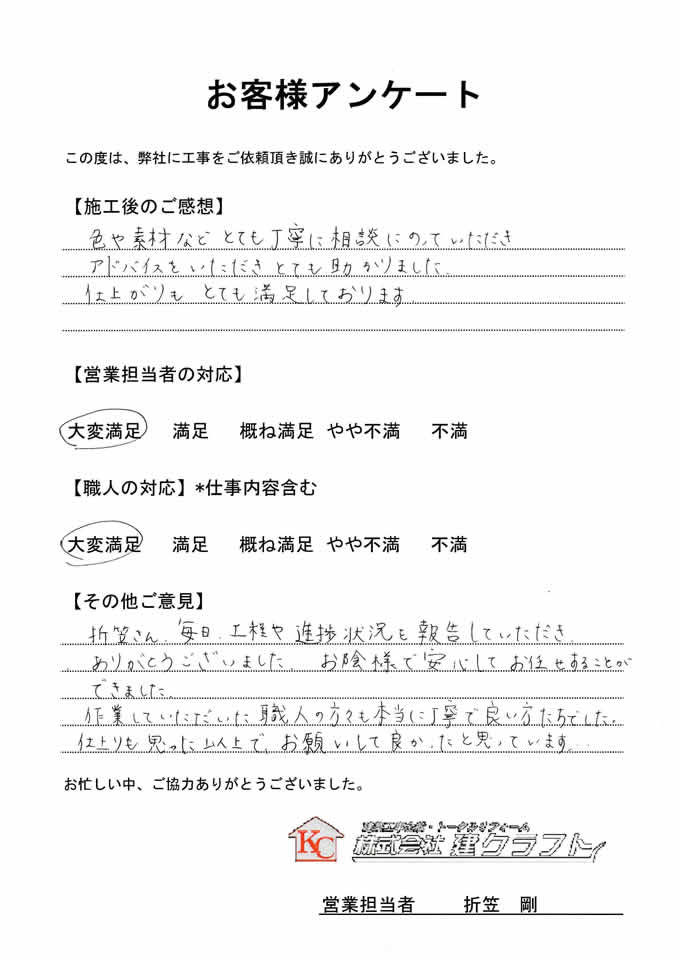 お客様アンケート
この度は、弊社に工事をご依頼頂き誠にありがとうございました。
【施工後のご感想】
色や素材など とても丁寧に相談にのっていただき
アドバイスをいただきとても助かりました。
仕上がりも とても満足しております。
【営業担当者の対応】
大変満足 満足 概ね満足 やや不満 不満
【職人の対応】*仕事内容含む
大変満足 満足 概ね満足 やや不満 不満
【その他ご意見】
折笠さん、毎日、工程や進捗状況も報告していただき、
ありがとうございました。 お陰様で安心してお任せすることが
できました。
作業していただいた職人の方々も本当に丁寧で良い方たちでした。
仕上りも思った以上で、お願いして良かったと思っています…
お忙しい中、ご協力ありがとうございました。
KC
株式会社 建クラフト
営業担当者 折笠 剛